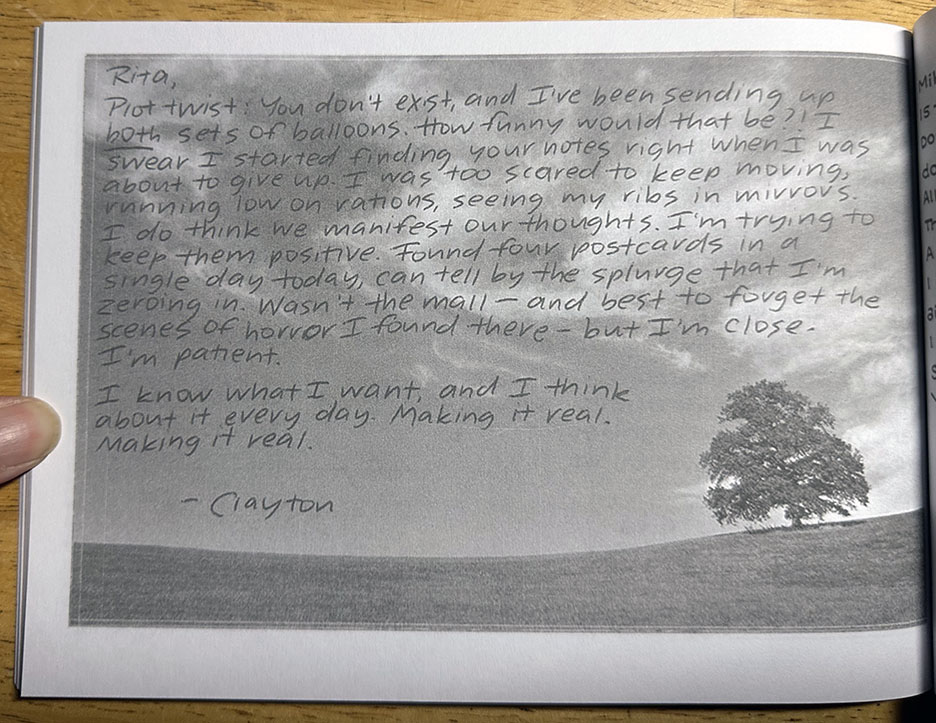 Rita,
Plot twist: You don't exist, and I've been sending up
both sets of balloons. How funny would that be?! I
swear I started finding your notes right when I was
about to give up. I was too scared to keep moving,
running low on rations, seeing my ribs in mirrors.
I do think we manifest our thoughts. I'm trying to
keep them positive. Found four postcards in a
single day today, can tell by the splurge that I'm
zeroing in. Wasn't the mall — and best to forget the
scenes of horror I found there — but I'm close.
I'm patient.
I know what I want, and I think
about it every day. Making it real.
Making it real.
- Clayton